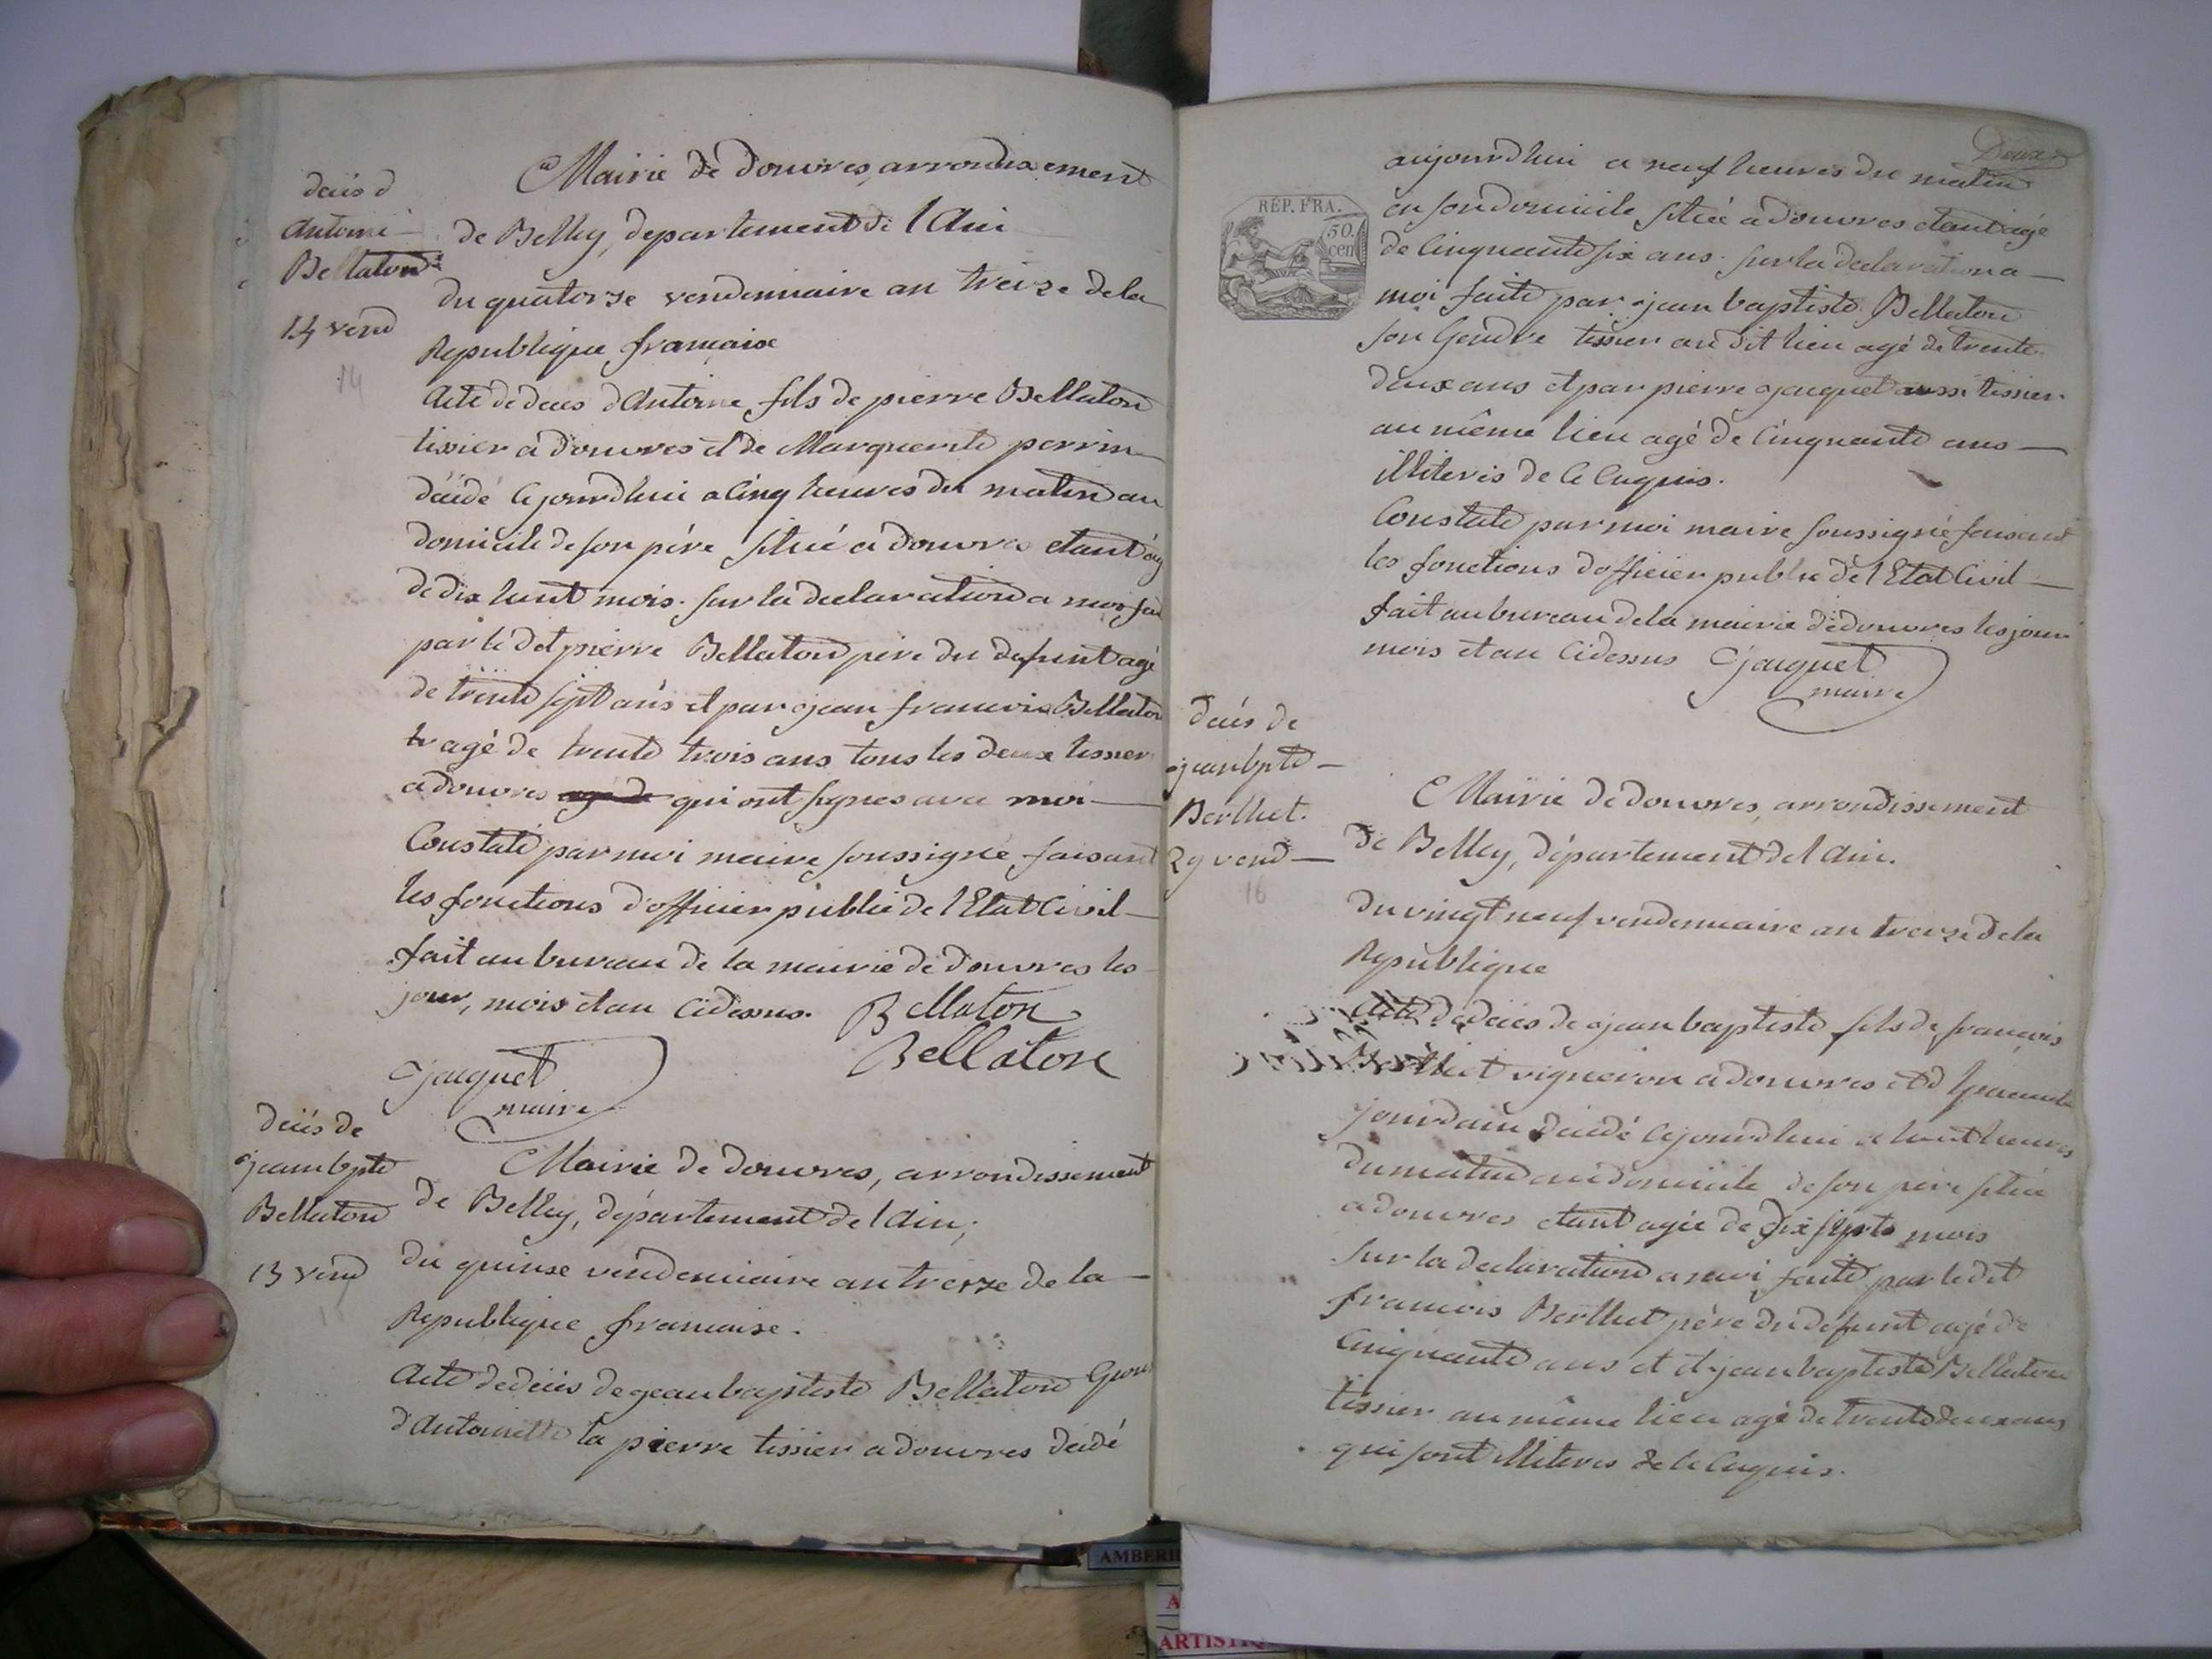 decès d
Antoine
Bellaton
14 vend
14
Mairie de douvres, arrondixement
de Belley, departement de l Ain
du quatorze vendemiaire an treize de la
Republique francaise
Acte de decès d Antoine fils de pierre Bellaton
tissier a douvres et de Marguerite perrin
décédé cejourdhui a cinq heures du matin au
domicile de son pére situé a douvres etant ag
de dix huit mois. sur la declaration a moi fai
par le dt pierre Bellaton pere du defunt agé
de trente sept ans et par jean francois Bellaton
tr agé de trente trois ans tous les deux tissier
a douvres agé de qui ont signes avec moi
Constaté par moi maire soussigné faisant
les fonctions d'officier public de l'Etat Civil
fait au bureau de la mairie de douvres les
jour, mois et an cidessus. Bellaton
Bellaton
jaquet
maire
decès de
jean bpte
Bellaton
15 vend
Mairie de douvres, arrondissement
de Belley, département de l Ain,
du quinse vendemiaire an treize de la
Republique francaise.
Acte de decès de jean baptiste Bellaton
d'Antoinette la pierre tissier a douvres décédé
Deux
RÉP. FRA.
50
cen
aujourdhui a neuf heures du matin
en son domicile situé a douvres etant agé
de cinquante six ans. sur la declaration a
moi faite par jean baptiste Bellaton
son Gendre tissier au dit lieu agé de trente
deux ans et par pierre jaquet aussi tissier
au même lieu agé de cinquante ans
illiteris de ce enquis.
Constaté par moi maire soussigné faisant
les fonctions d'officier public de l'Etat Civil
fait au bureau de la mairie de douvres les jour
mois et an cidessus jaquet
maire
decès de
jean bpte
Berthet.
29 vend
16
Mairie de douvres, arrondissement
de Belley, département de l Ain.
du vingt neuf vendemiaire an treize de la
Republique
Acte de decès de jean baptiste fils de francois
Berthet vigneron a douvres et d
jourdain décédé cejourdhui a huit heures
du matin au domicile de son pere situé
a douvres etant agé de dix septs mois
sur la declaration a moi faite par le dit
francois Berthet père du défunt agé de
cinquante ans et et jean baptiste Bellaton
tissier au même lieu agé de trente deux ans
qui sont illiteres de ce enquis.
AMBERI
A
ARTISTIQ